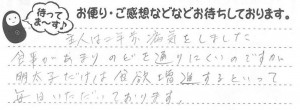 待ってま〜す♪
お便り・ご感想などなどお待ちしております。
主人は一年余病気をしました
食事があまりのどを通りにくいのですが
明太子だけは食欲増進するといって
毎日いただいております。